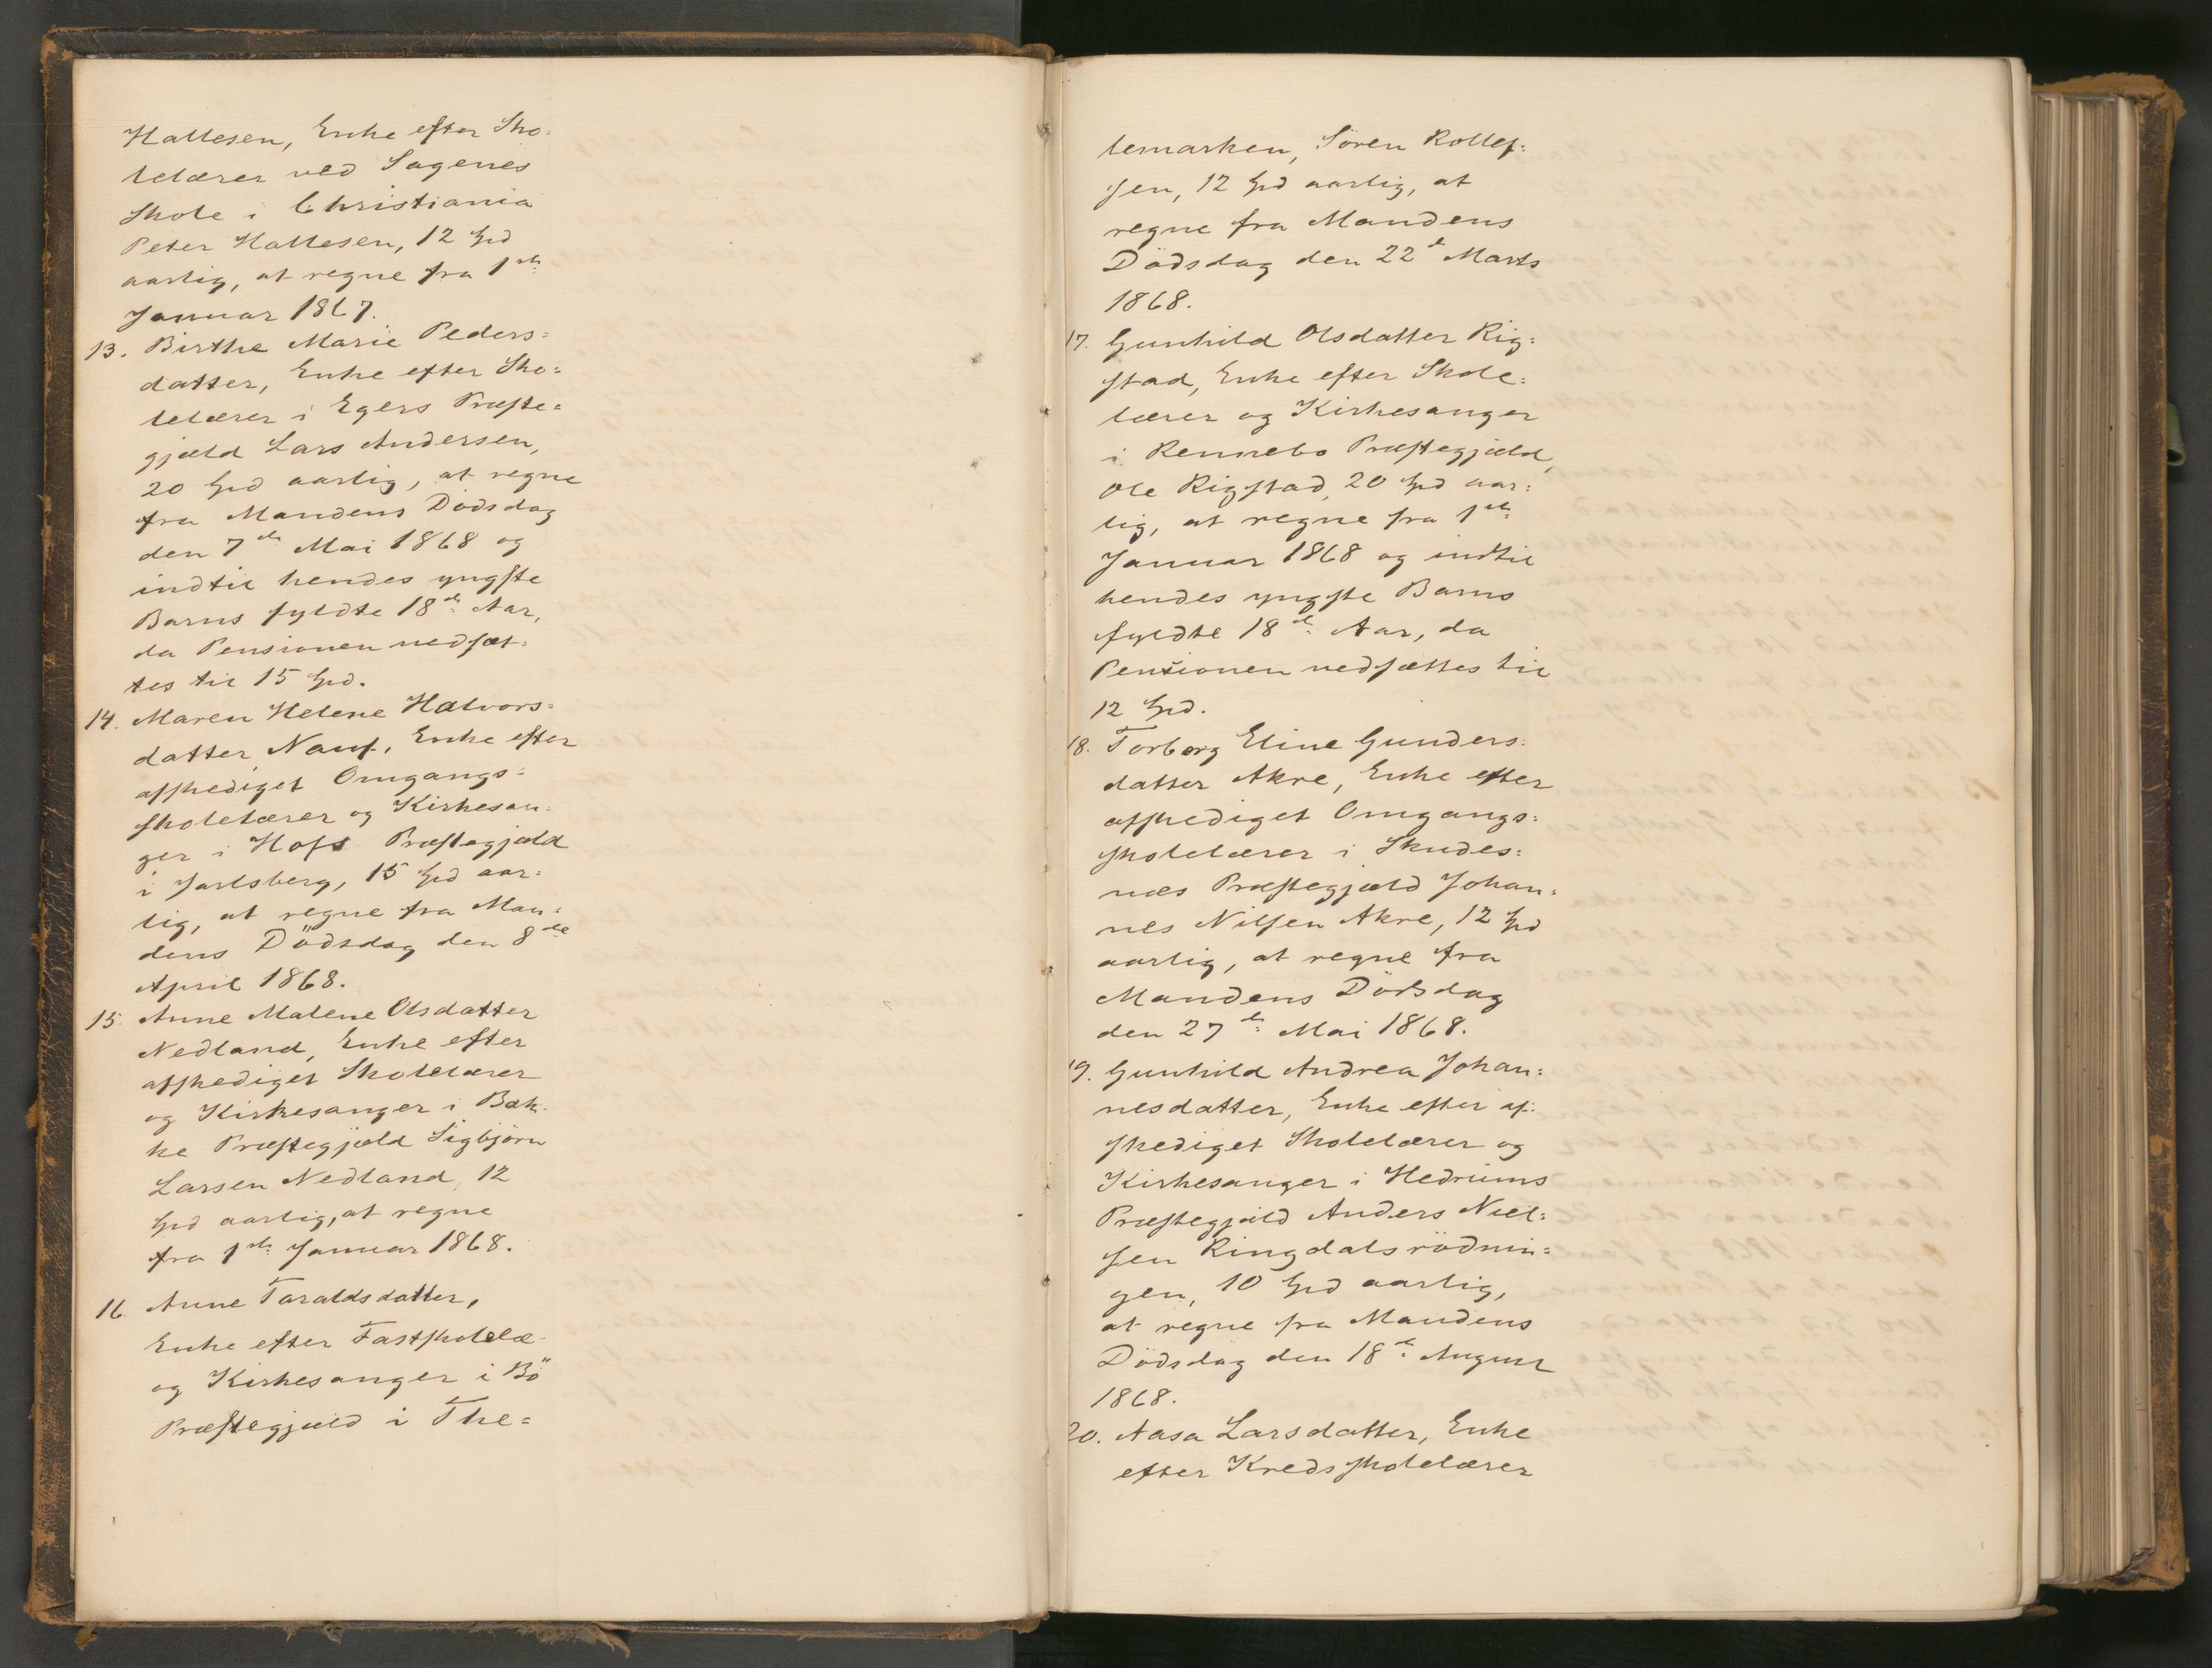 Hallesen, Enke efter Sko=
lelærer ved Sagenes
Skole i Christiania
Peter Hallesen, 12 Spd
aarlig, at regne fra 1ste
Januar 1867.
13. Birthe Marie Peders=
datter, Enke efter Sko=
lelærer i Egers Præste=
gjæld Lars Andersen,
20 Spd aarlig, at regne
fra Mandens Dødsdag
den 7de Mai 1868 og
indtil hendes yngste
Barns fyldte 18de Aar,
da Pensionen nedsæt=
tes til 15 Spd.
14. Maren Helene Halvors=
datter Nauf, Enke efter
afskediget Omgangs=
skolelærer og Kirkesan=
ger i Hofs Præstegjæld
i Jarlsberg, 15 Spd aar=
lig, at regne fra Man=
dens Dödsdag den 8de
April 1868.
15. Anne Malene Olsdatter
Nedland, Enke efter
afskediget Skolelærer
og Kirkesanger i Bak=
ke Præstegjæld Sigbjörn
Larsen Nedland, 12
Spd aarlig, at regne
fra 1ste Januar 1868.
16. Anne Taraldsdatter,
Enke efter Fastskolelæ-
og Kirkesanger i Bö
Præstegjæld i The=
lemarken, Sören Rollef=
sen, 12 Spd aarlig, at
regne fra Mandens
Dødsdag den 22de Marts
1868.
17. Gunhild Olsdatter Rig=
stad, Enke efter Skole=
lærer og Kirkesanger
i Rennebo Præstegjæld,
Ole Rigstad, 20 Spd aar=
lig, at regne fra 1ste
Januar 1868 og indtil
hendes yngste Barns
fyldte 18de Aar, da
Pensionen nedsættes til
12 Spd.
18. Torborg Eline Gunders=
datter Akre, Enke efter
afskediget Omgangs=
skolelærer i Skudes=
næs Præstegjæld Johan=
nes Nilsen Akre, 12 Spd
aarlig, at regne fra
Mandens Dödsdag
den 27de Mai 1868.
19. Gunhild Andrea Johan=
nesdatter, Enke efter af=
skediget Skolelærer og
Kirkesanger i Hedrums
Præstegjæld Anders Niel=
sen Ringdalsrödnin=
gen, 10 Spd aarlig,
at regne fra Mandens
Dödsdag den 18de August
1868.
20. Aasa Larsdatter, Enke
efter Kredsskolelærer